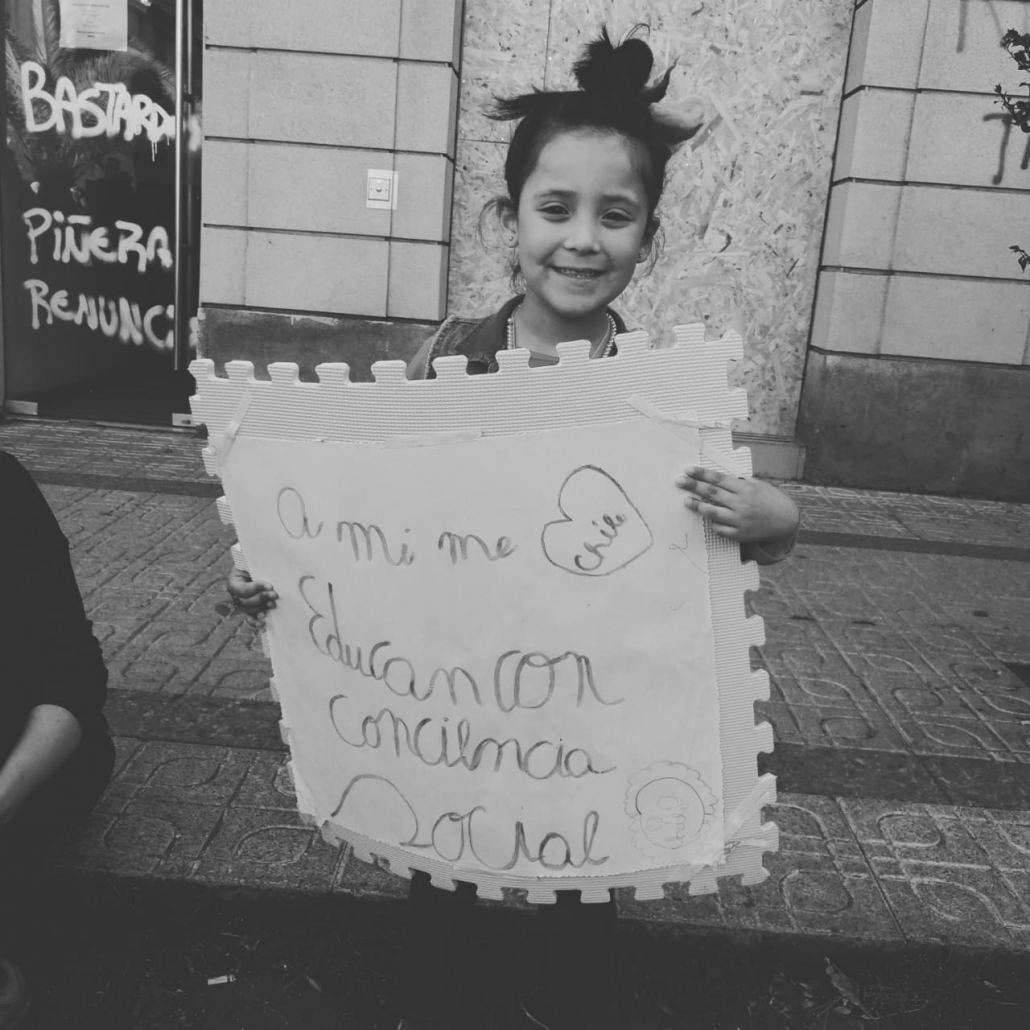 BASTARD
PIÑERA
RENUNCI
a mi me
chile
Educan con
conciencia
Social